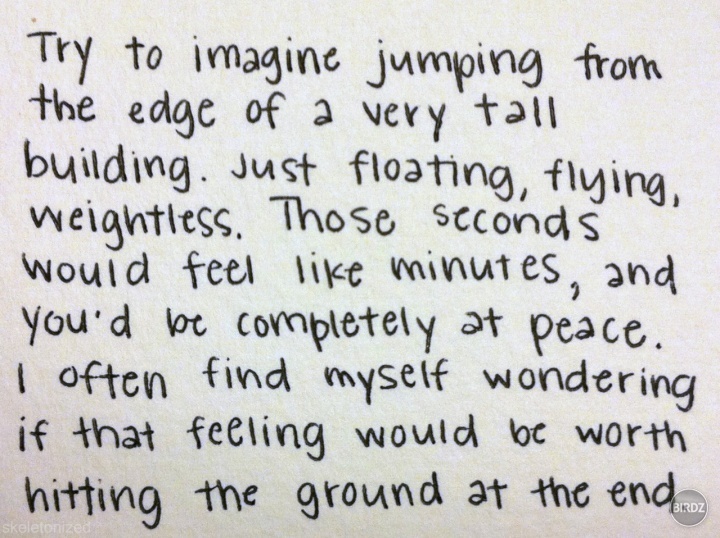 Try to imagine jumping from
the edge of a very tall
building. Just floating, flying,
weightless. Those seconds
would feel like minutes, and
you'd be completely at peace.
I often find myself wondering
if that feeling would be worth
hitting the ground at the end
BIRDZ
skeletonized